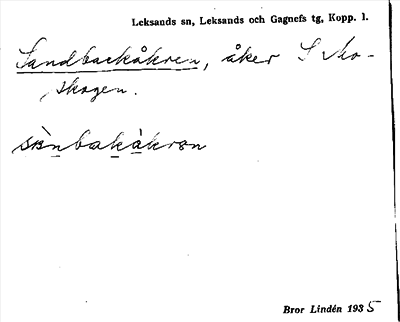 Leksands sn, Leksands och Gagnefs tg, Kopp. l.
Sandbackåkren, åker S
skogen.
Bror Lindén 1935